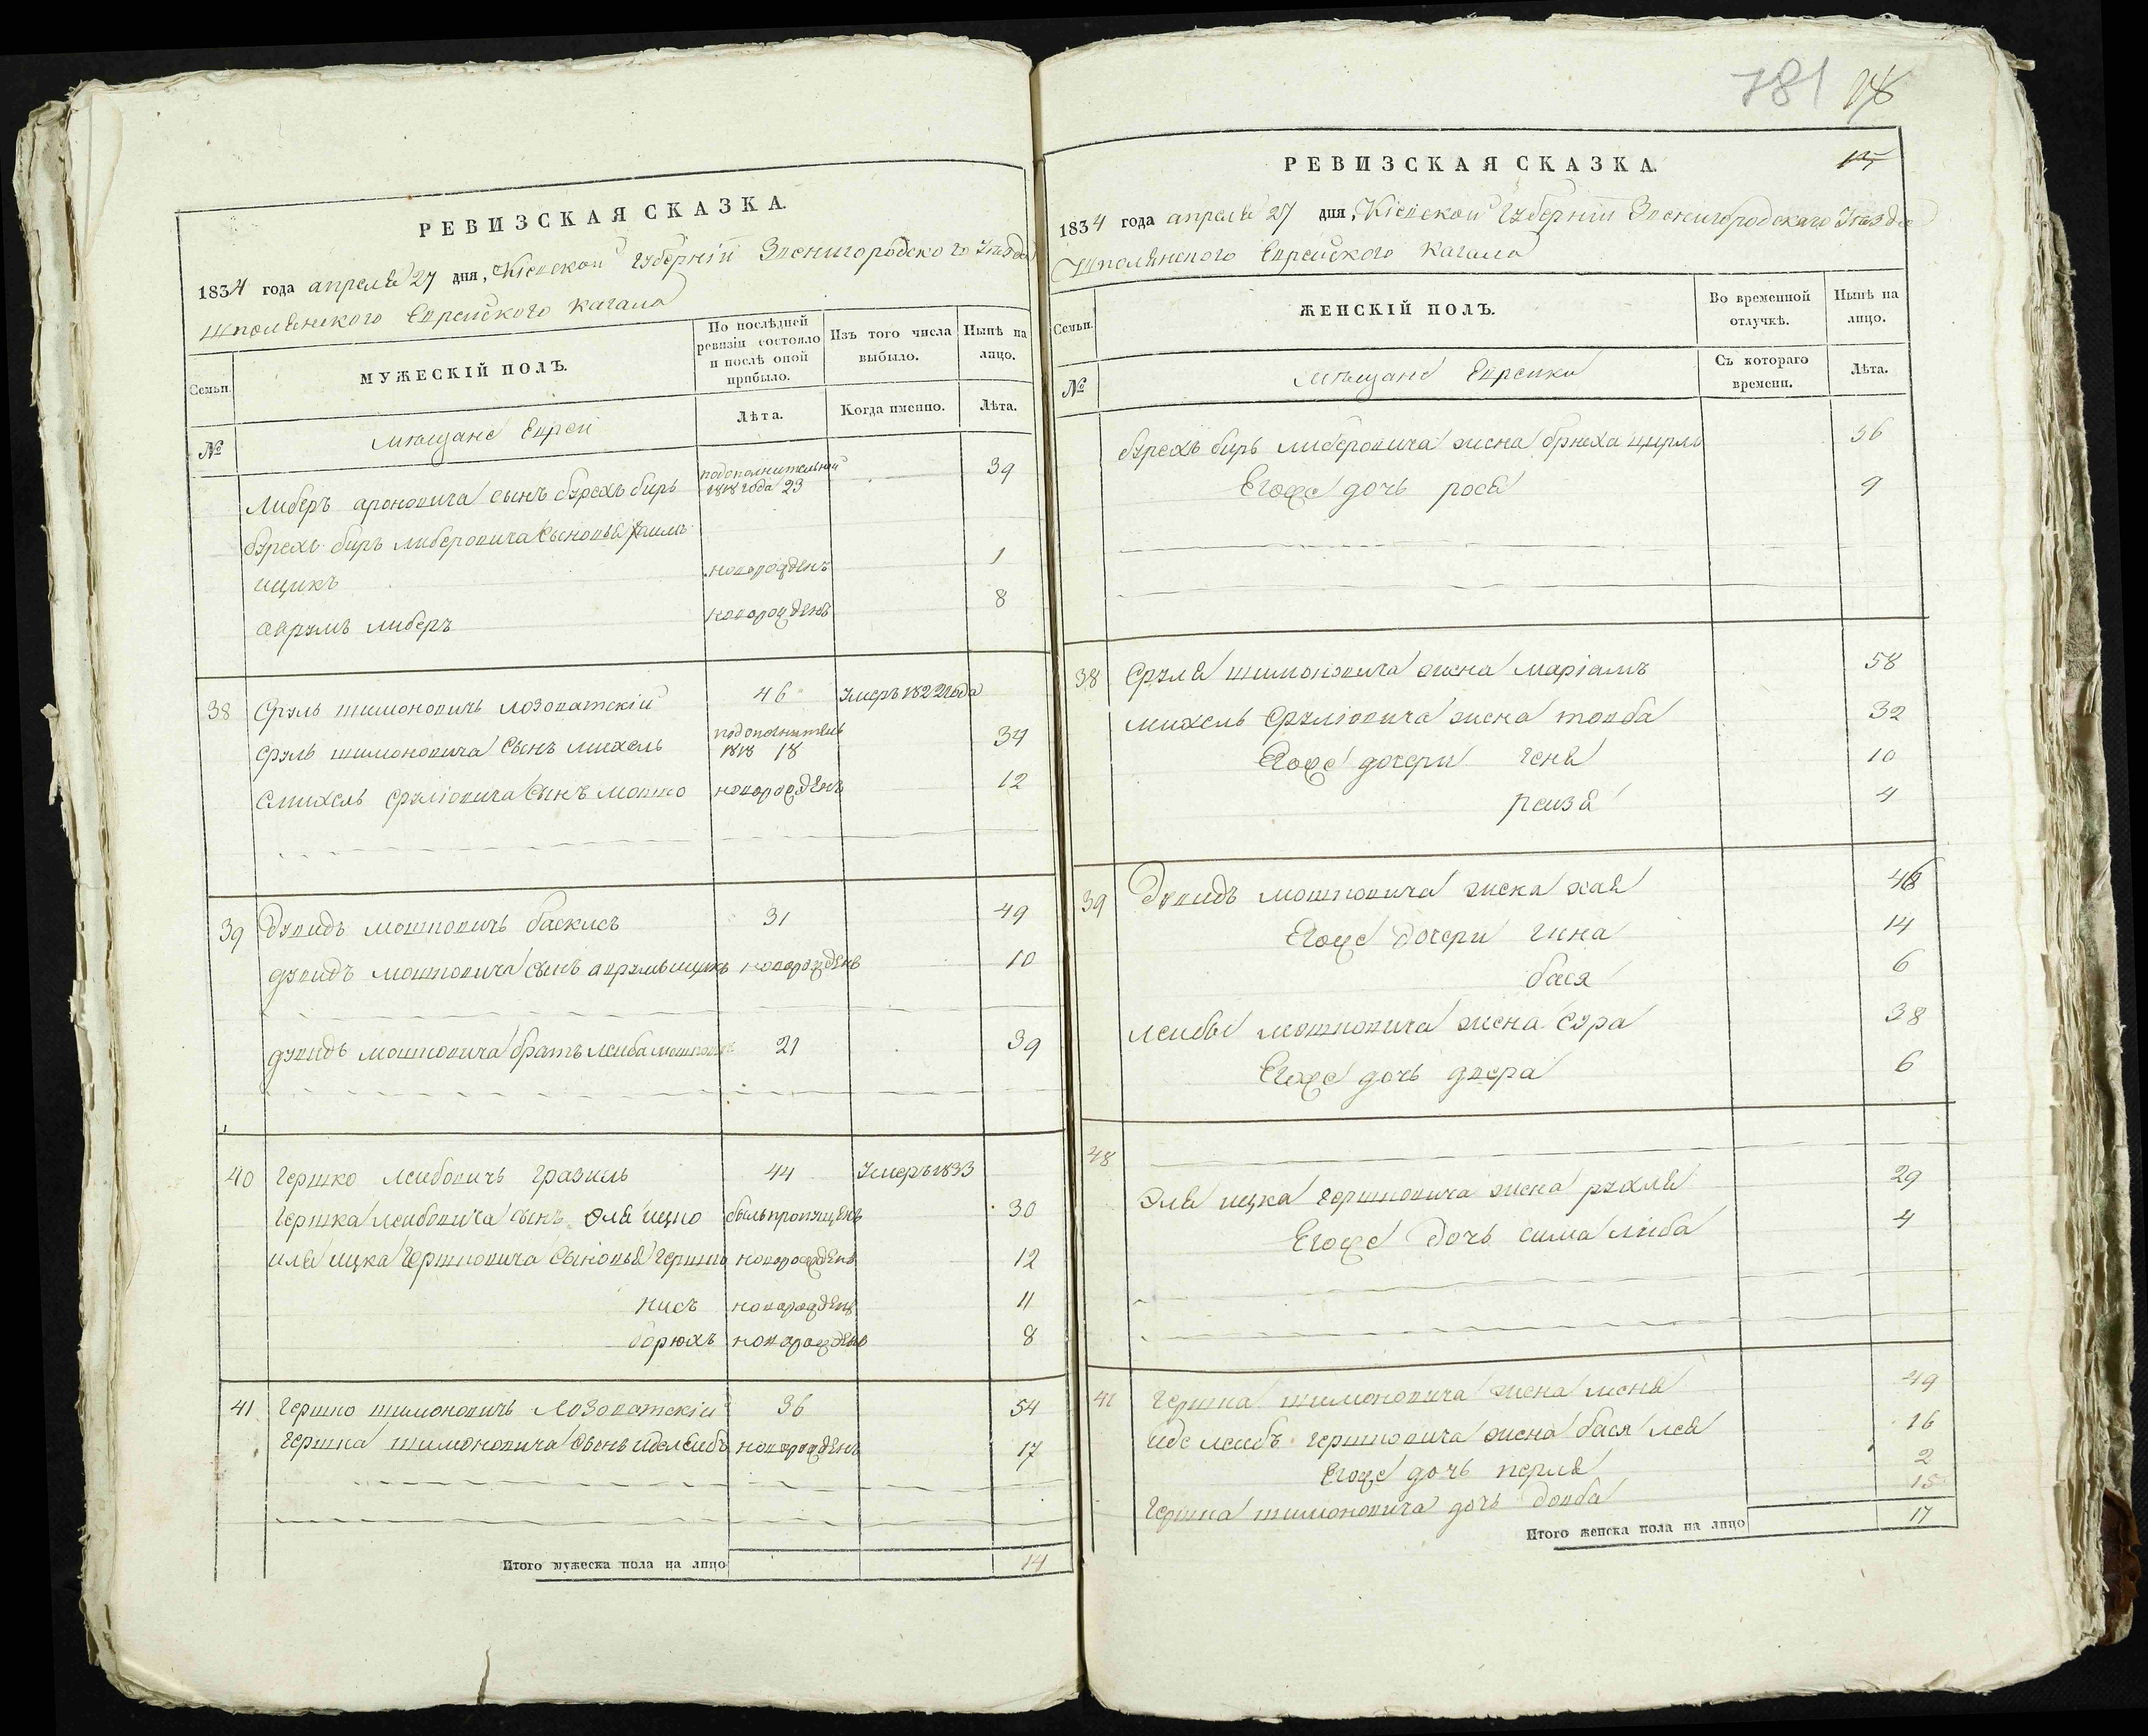 РЕВИЗСКАЯ СКАЗКА.
1834 года апреля 27 дня, Кіевской Губерніи Звенигородского Уезда
Шполянского Еврейского кагала
Семьи. МУЖЕСКІЙ ПОЛЪ. По послѣдней ревизіи состояло и послѣ оной прибыло. Изъ того числа выбыло. Нынѣ на лицо.
№ мещане Евреи Лѣта. Когда именно. Лѣта.
Либеръ ароновича сынъ бурехъ беръ подополнительной 1818 года 23 39
бурехъ беръ либеровича сыновья хаимъ
ицикъ новорожденъ 1
аврумъ либеръ новорожденъ 8
38 Сруль шимоновичъ лозоватскій 46 Умеръ 1822 года
Сруль шимоновича сынъ михель подополнитель 1818 18 34
михель сруліовича сынъ мошко новорожденъ 12
39 Дувидъ мошковичъ баскисъ 31 49
дувидъ мошковича сынъ аврумъ ицикъ новорожденъ 10
дувидъ мошковича братъ лейба мошковичъ 21 39
40 Гершко лейбовичъ 44 Умеръ 1833
Гершка лейбовича сынъ эля ицко былъ пропущенъ 30
иля ицка гершковича сыновья гершко новорожденъ 12
нисъ новорожденъ 11
борюхъ новорожденъ 8
41 Гершко шимоновичъ лозоватскій 36 54
Гершка шимоновича сынъ иделейбъ новорожденъ 17
Итого мужеска пола на лицо 14
781
РЕВИЗСКАЯ СКАЗКА.
1834 года апреля 27 дня, Кіевской Губерніи Звенигородскаго Уезда
Шполянского Еврейского кагала
Семьи. ЖЕНСКІЙ ПОЛЪ. Во временной отлучкѣ. Нынѣ на лицо.
№ мещане Еврейки Съ котораго времени. Лѣта.
бурехъ беръ либеровича жена брнеха цирль 36
Егоже дочь рося 9
38 Сруля шимоновича жена маріамъ 58
михель сруліовича жена товба 32
Егоже дочери геня 10
рейзя 4
39 Дувидъ мошковича жена хая 48
Егоже дочери гина 14
бася 6
лейбы мошковича жена сура 38
Егоже дочь двера 6
48
Эля ицка гершковича жена рухля 29
Егоже дочь сима либа 4
41 Гершка шимоновича жена меня 49
иде лейбъ гершковича жена бася лея 16
Егоже дочь перля 2
Гершка шимоновича дочь довба 15
Итого женска пола на лицо 17